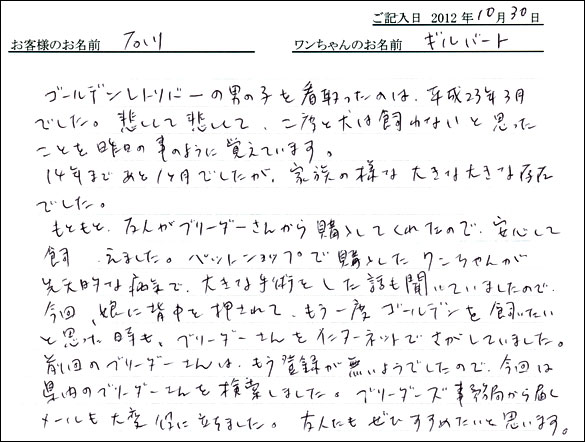 ご記入日 2012年10月30日
お客様のお名前 石川 ワンちゃんのお名前 ギルバート
ゴールデンレトリバーの男の子を看取ったのは、平成23年3月
でした。悲しくて悲しくて、二度と犬は飼わないと思った
ことを昨日の事のように覚えています。
14年まであと1ヶ月でしたが、家族の様な大きな大きな存在
でした。
もともと、友人がブリーダーさんから購入してくれたので、安心して
飼えました。ペットショップで購入したワンちゃんが
先天的な病気で、大きな手術をした話も聞いていましたので、
今回、娘に背中を押されて、もう一度ゴールデンを飼いたい
と思った時も、ブリーダーさんをインターネットでさがしていました。
前回のブリーダーさんは、もう登録が無いようでしたので、今回は
県内のブリーダーさんを検索しました。ブリーダーズ事務局から届く
メールも大変役に立ちました。友人にもぜひすすめたいと思います。